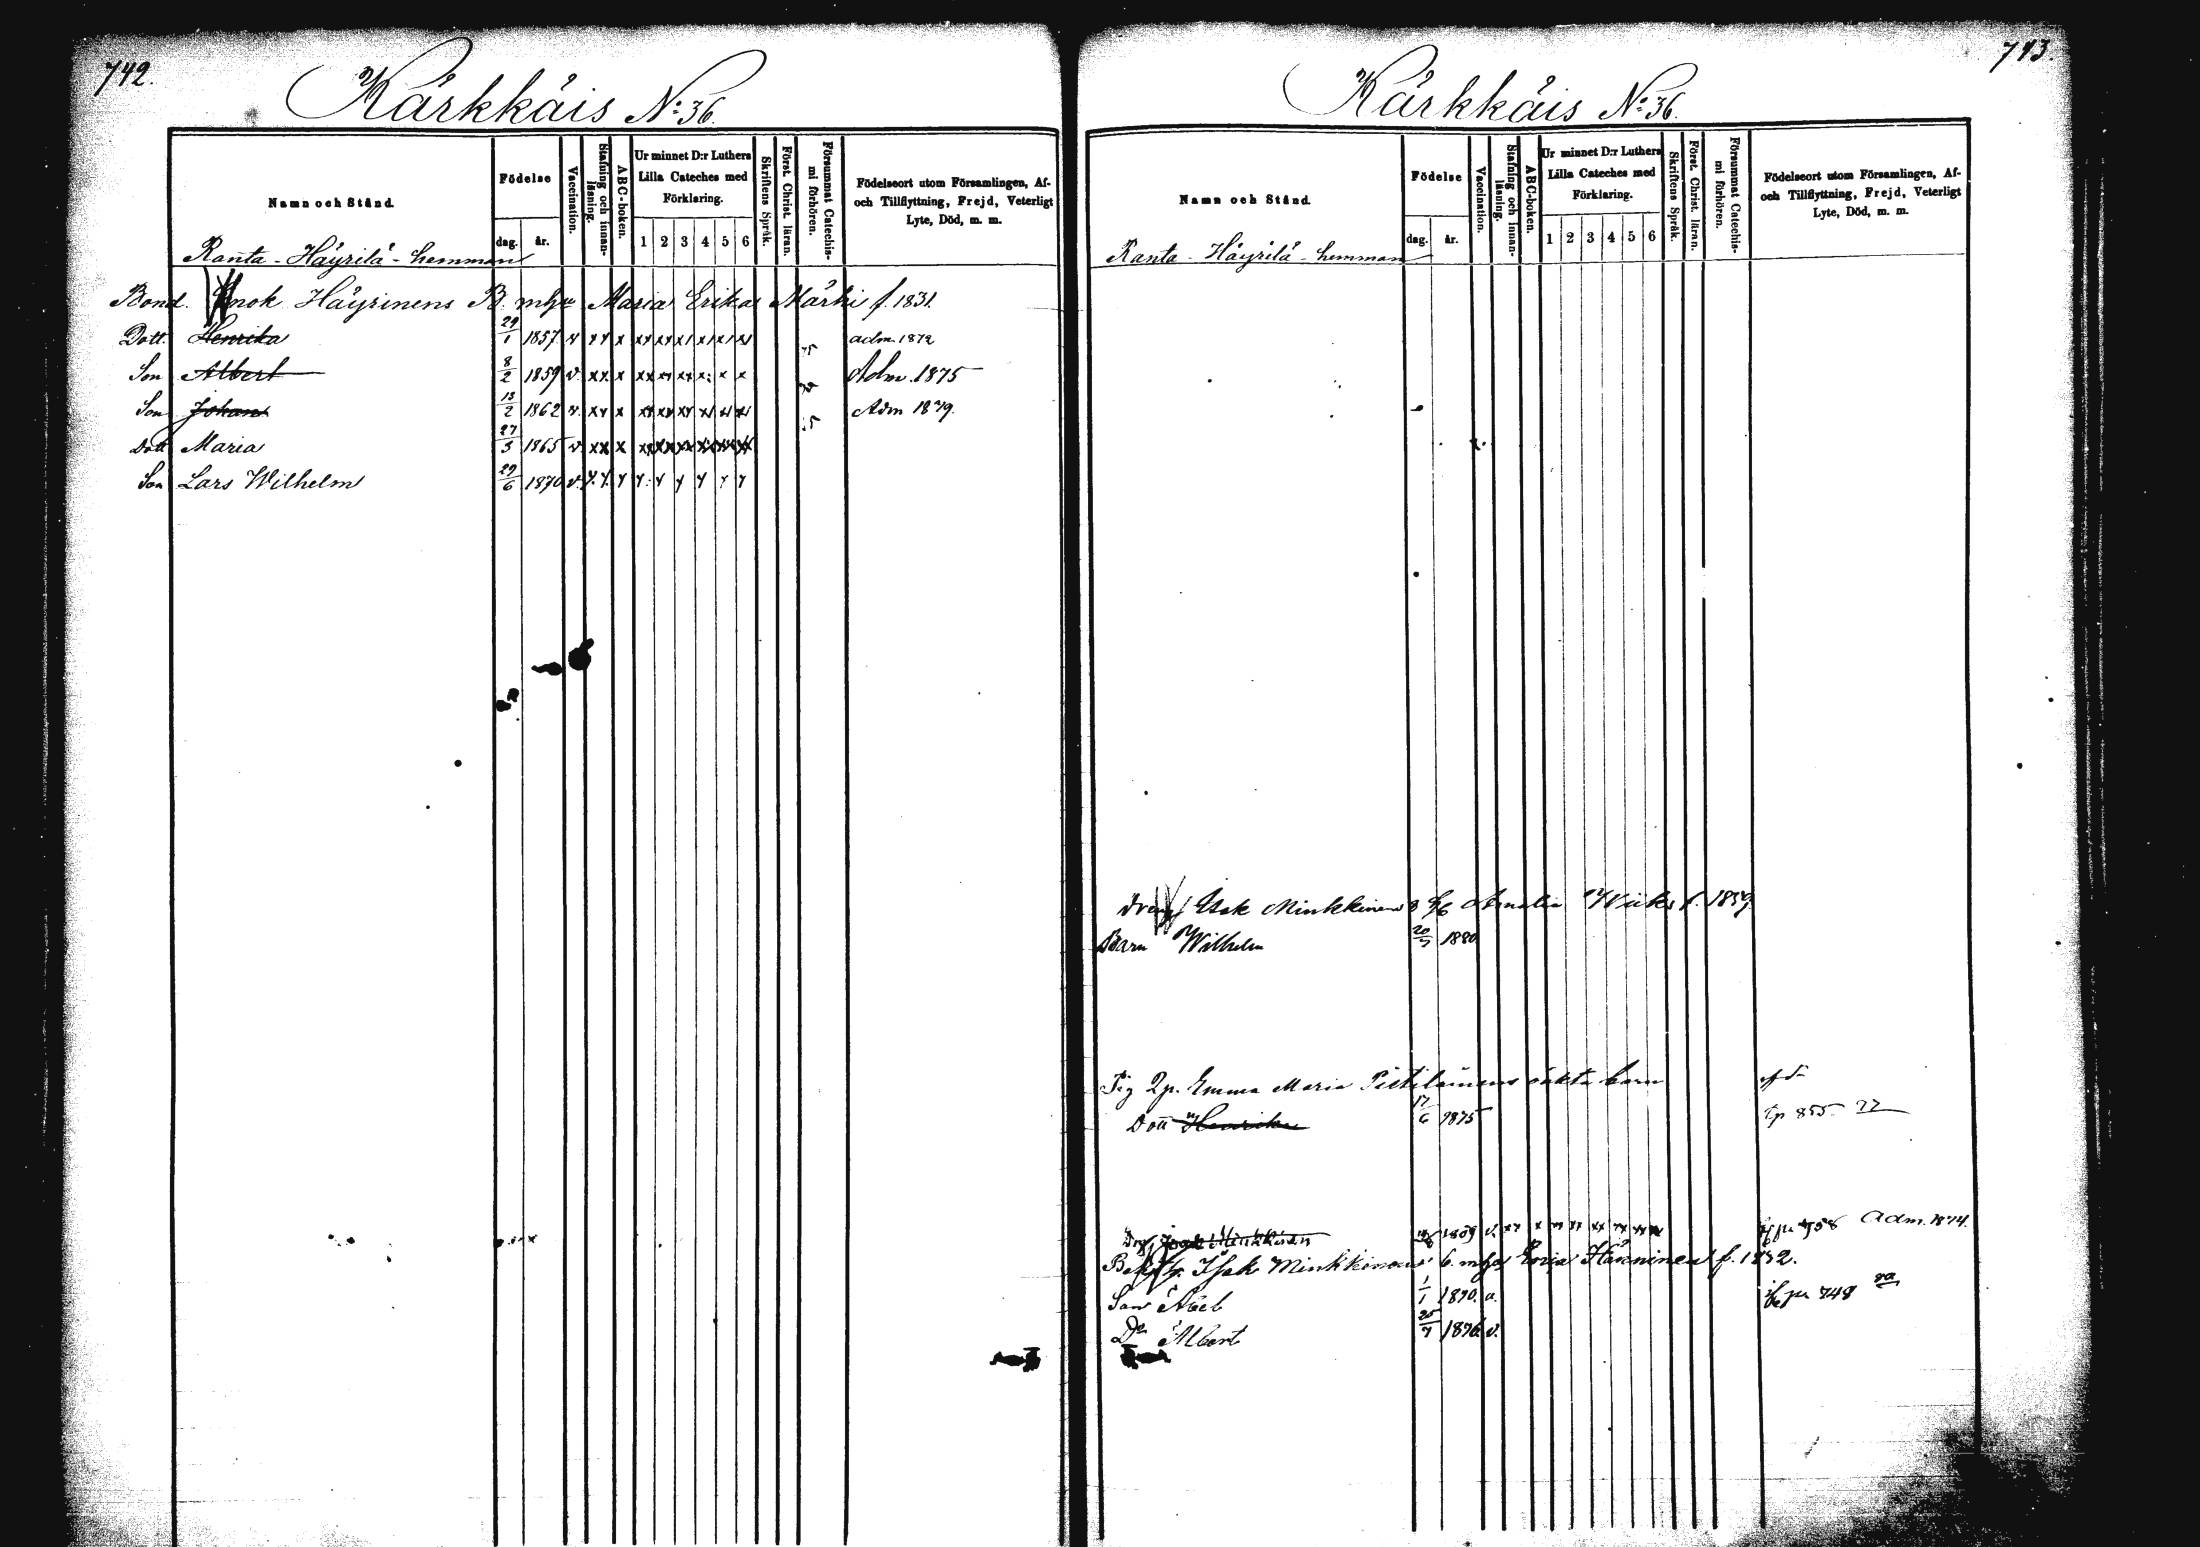 742.
Kärkkäis No: 36.
Namn och Stånd.
Födelse
dag. år.
Vaccination.
Stafning och innan-läsning.
ABC-boken.
Ur minnet D:r Luthers Lilla Cateches med Förklaring.
1 2 3 4 5 6
Skriftens Språk.
Först. Christ. läran.
Försummat Catechis-mi förhören.
Födelseort utom Församlingen, Af- och Tillflyttning, Frejd, Veterligt Lyte, Död, m. m.
Ranta-Häyrilä-hemman
Bond. Enok Häyrinens B. m hu Maria Erika Märki f. 1831.
Dott Henrika 29/1 1857 v xx x xx xx x x x x adm. 1872
Son Albert 8/2 1859 v. xx. x xx xx xx x: x x Adm. 1875
Son Johan 13/2 1862 v. xx x xx xx xx x x x Adm 1879.
Dott Maria 27/3 1865 v. xx x xx xx xx xx xx xx
Son Lars Wilhelm 29/6 1870 v.
743.
Kärkkäis No: 36.
Namn och Stånd.
Födelse
dag. år.
Vaccination.
Stafning och innan-läsning.
ABC-boken.
Ur minnet D:r Luthers Lilla Cateches med Förklaring.
1 2 3 4 5 6
Skriftens Språk.
Först. Christ. läran.
Försummat Catechis-mi förhören.
Födelseort utom Församlingen, Af- och Tillflyttning, Frejd, Veterligt Lyte, Död, m. m.
Ranta-Häyrilä-hemman
Dreng Isak Minkkinens Amalia f. 1859
Barn Wilhelm 20/7 1880
Pig Emma Maria Pietiläinens oäkta barn
Dott Henrika 17/6 1875 tp 855 77
Drg Isak Minkkinen 1859 v. xx x xx xx xx xx xx xx 758 Adm. 1874.
Isak Minkkinens b. m hu Häkkinen f. 1832.
Son Abel 1/1 1870. v. 748
Do Albert 25/7 1876 v.